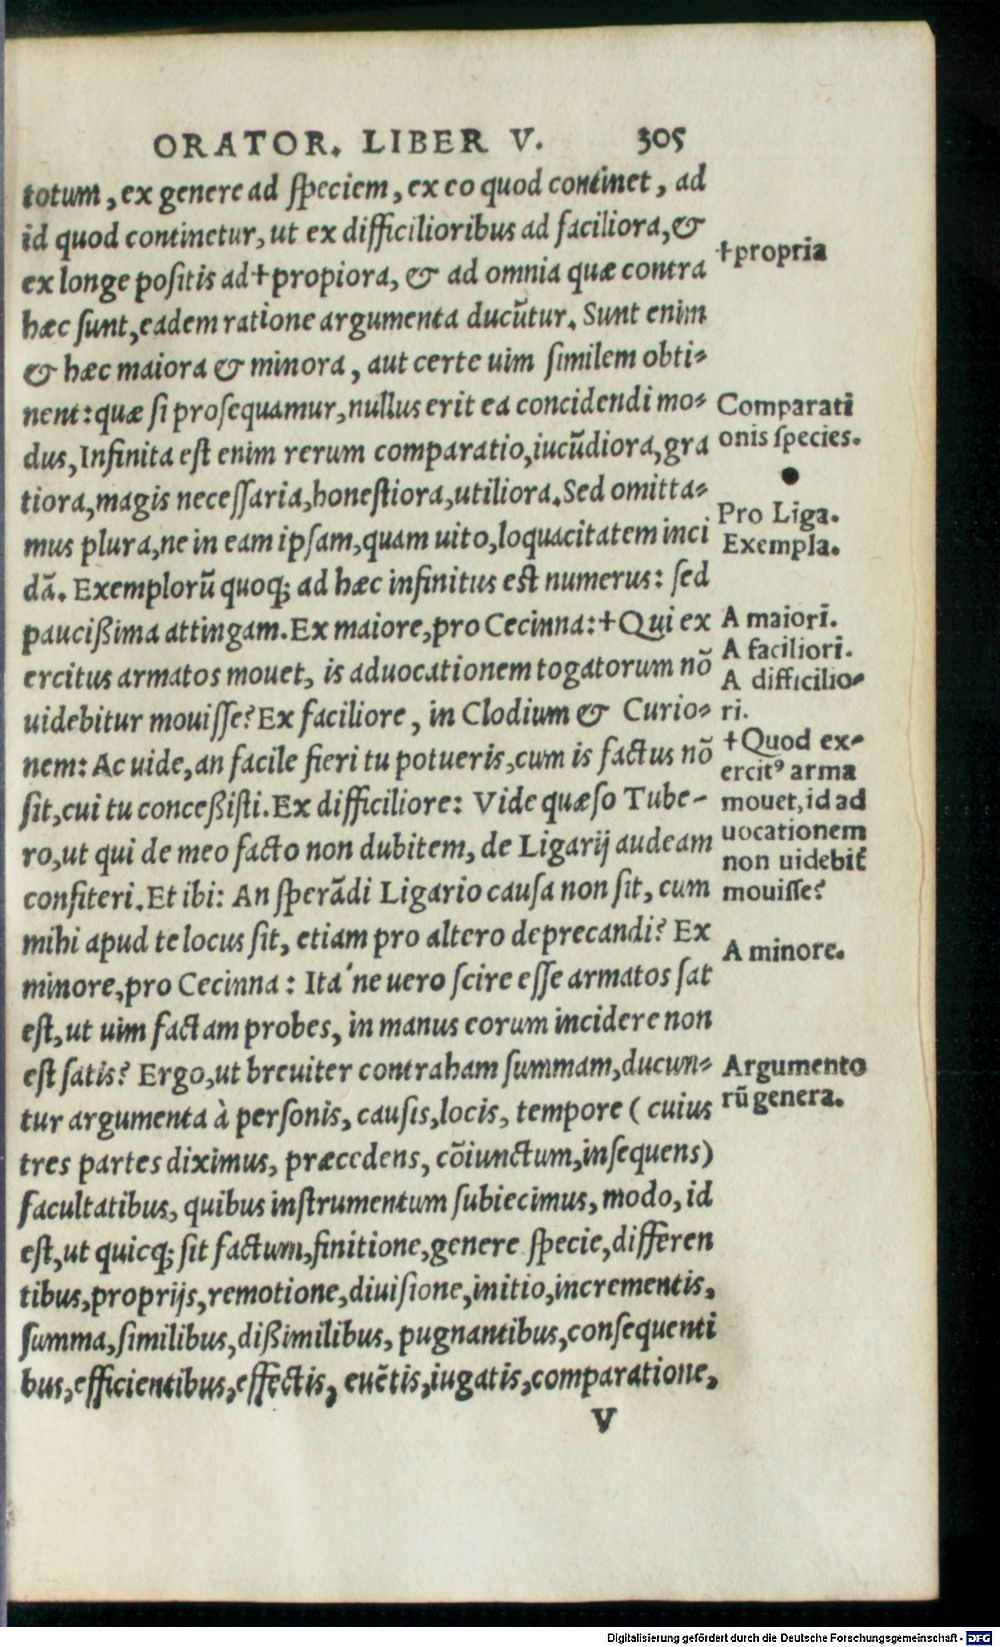 ORATOR. LIBER V. 305
totum, ex genere ad speciem, ex eo quod continet, ad
id quod continetur, ut ex difficilioribus ad faciliora, &
ex longe positis ad †propiora, & ad omnia quæ contra
hæc sunt, eadem ratione argumenta ducũtur. Sunt enim
& hæc maiora & minora, aut certe uim similem obti-
nent: quæ si prosequamur, nullus erit ea concidendi mo-
dus, Infinita est enim rerum comparatio, iucũdiora, gra
tiora, magis necessaria, honestiora, utiliora. Sed omitta-
mus plura, ne in eam ipsam, quam uito, loquacitatem inci
dã. Exemplorũ quoq; ad hæc infinitus est numerus: sed
paucißima attingam. Ex maiore, pro Cecinna: †Qui ex
ercitus armatos mouet, is aduocationem togatorum nõ
uidebitur mouisse? Ex faciliore, in Clodium & Curio-
nem: Ac uide, an facile fieri tu potueris, cum is factus nõ
sit, cui tu conceßisti. Ex difficiliore: Vide quæso Tube-
ro, ut qui de meo facto non dubitem, de Ligarij audeam
confiteri. Et ibi: An sperãdi Ligario causa non sit, cum
mihi apud te locus sit, etiam pro altero deprecandi? Ex
minore, pro Cecinna: Ita´ne uero scire esse armatos sat
est, ut uim factam probes, in manus eorum incidere non
est satis? Ergo, ut breuiter contraham summam, ducun-
tur argumenta à personis, causis, locis, tempore (cuius
tres partes diximus, præcedens, cõiunctum, insequens)
facultatibus, quibus instrumentum subiecimus, modo, id
est, ut quicq; sit factum, finitione, genere specie, differen
tibus, proprijs, remotione, diuisione, initio, incrementis,
summa, similibus, dißimilibus, pugnantibus, consequenti
bus, efficientibus, effectis, euẽtis, iugatis, comparatione,
V
†propria
Comparati
onis species.
●
Pro Liga.
Exempla.
A maiori.
A faciliori.
A difficilio-
ri.
†Quod ex-
ercitꝰ arma
mouet, id ad
uocationem
non uidebit̃
mouisse?
A minore.
Argumento
rũ genera.
Digitalisierung gefördert durch die Deutsche Forschungsgemeinschaft - DFG